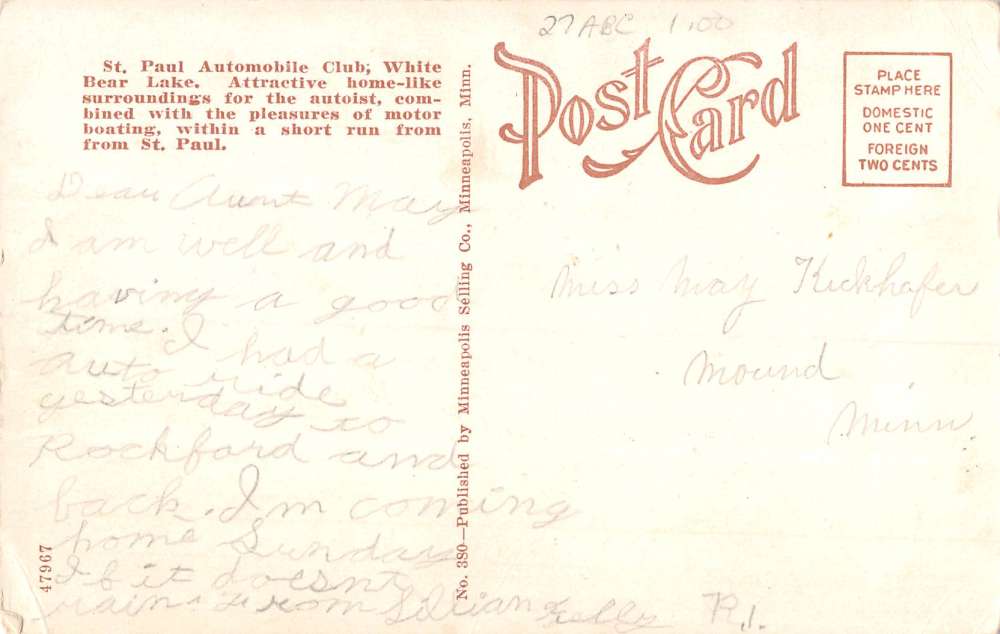 27ABC 1.00
St. Paul Automobile Club; White
Bear Lake. Attractive home-like
surroundings for the autoist, com-
bined with the pleasures of motor
boating, within a short run from
from St. Paul.
Post Card
PLACE
STAMP HERE
DOMESTIC
ONE CENT
FOREIGN
TWO CENTS
Dear Aunt May
I am well and
having a good
time. I had a
auto ride
yesterday to
Rockford and
back. Im coming
home Sunday
If it doesnt
rain. From Lillian
47967
No. 380—Published by Minneapolis Selling Co., Minneapolis, Minn.
Miss May Kickhafer
Mound
Minn.